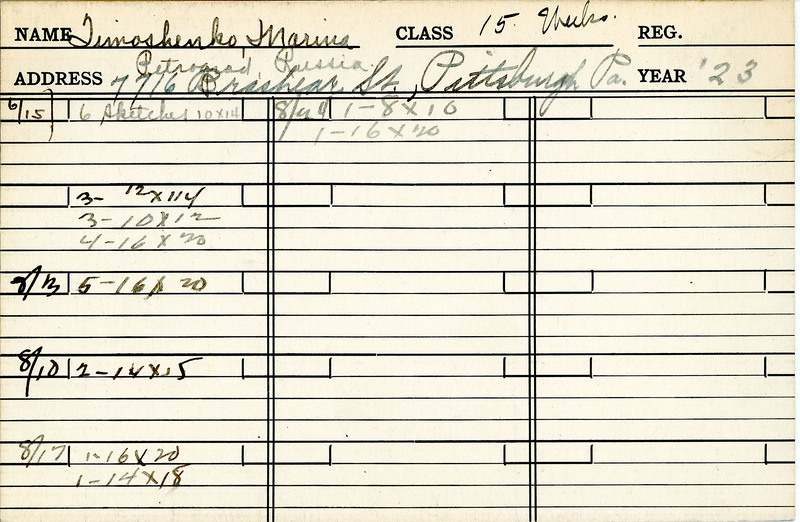 NAME Timoshenko, Marina CLASS 15 Weeks. REG.
Petrograd, Russia
ADDRESS 7716 Brashear St., Pittsburgh Pa. YEAR '23
6/15 6 Sketches 10x14 8/24 1-8x10
1-16x20
3- 12x14
3-10x12
4-16x20
5-16x20
8/10 2-14x15
8/17 1-16x20
1-14x18